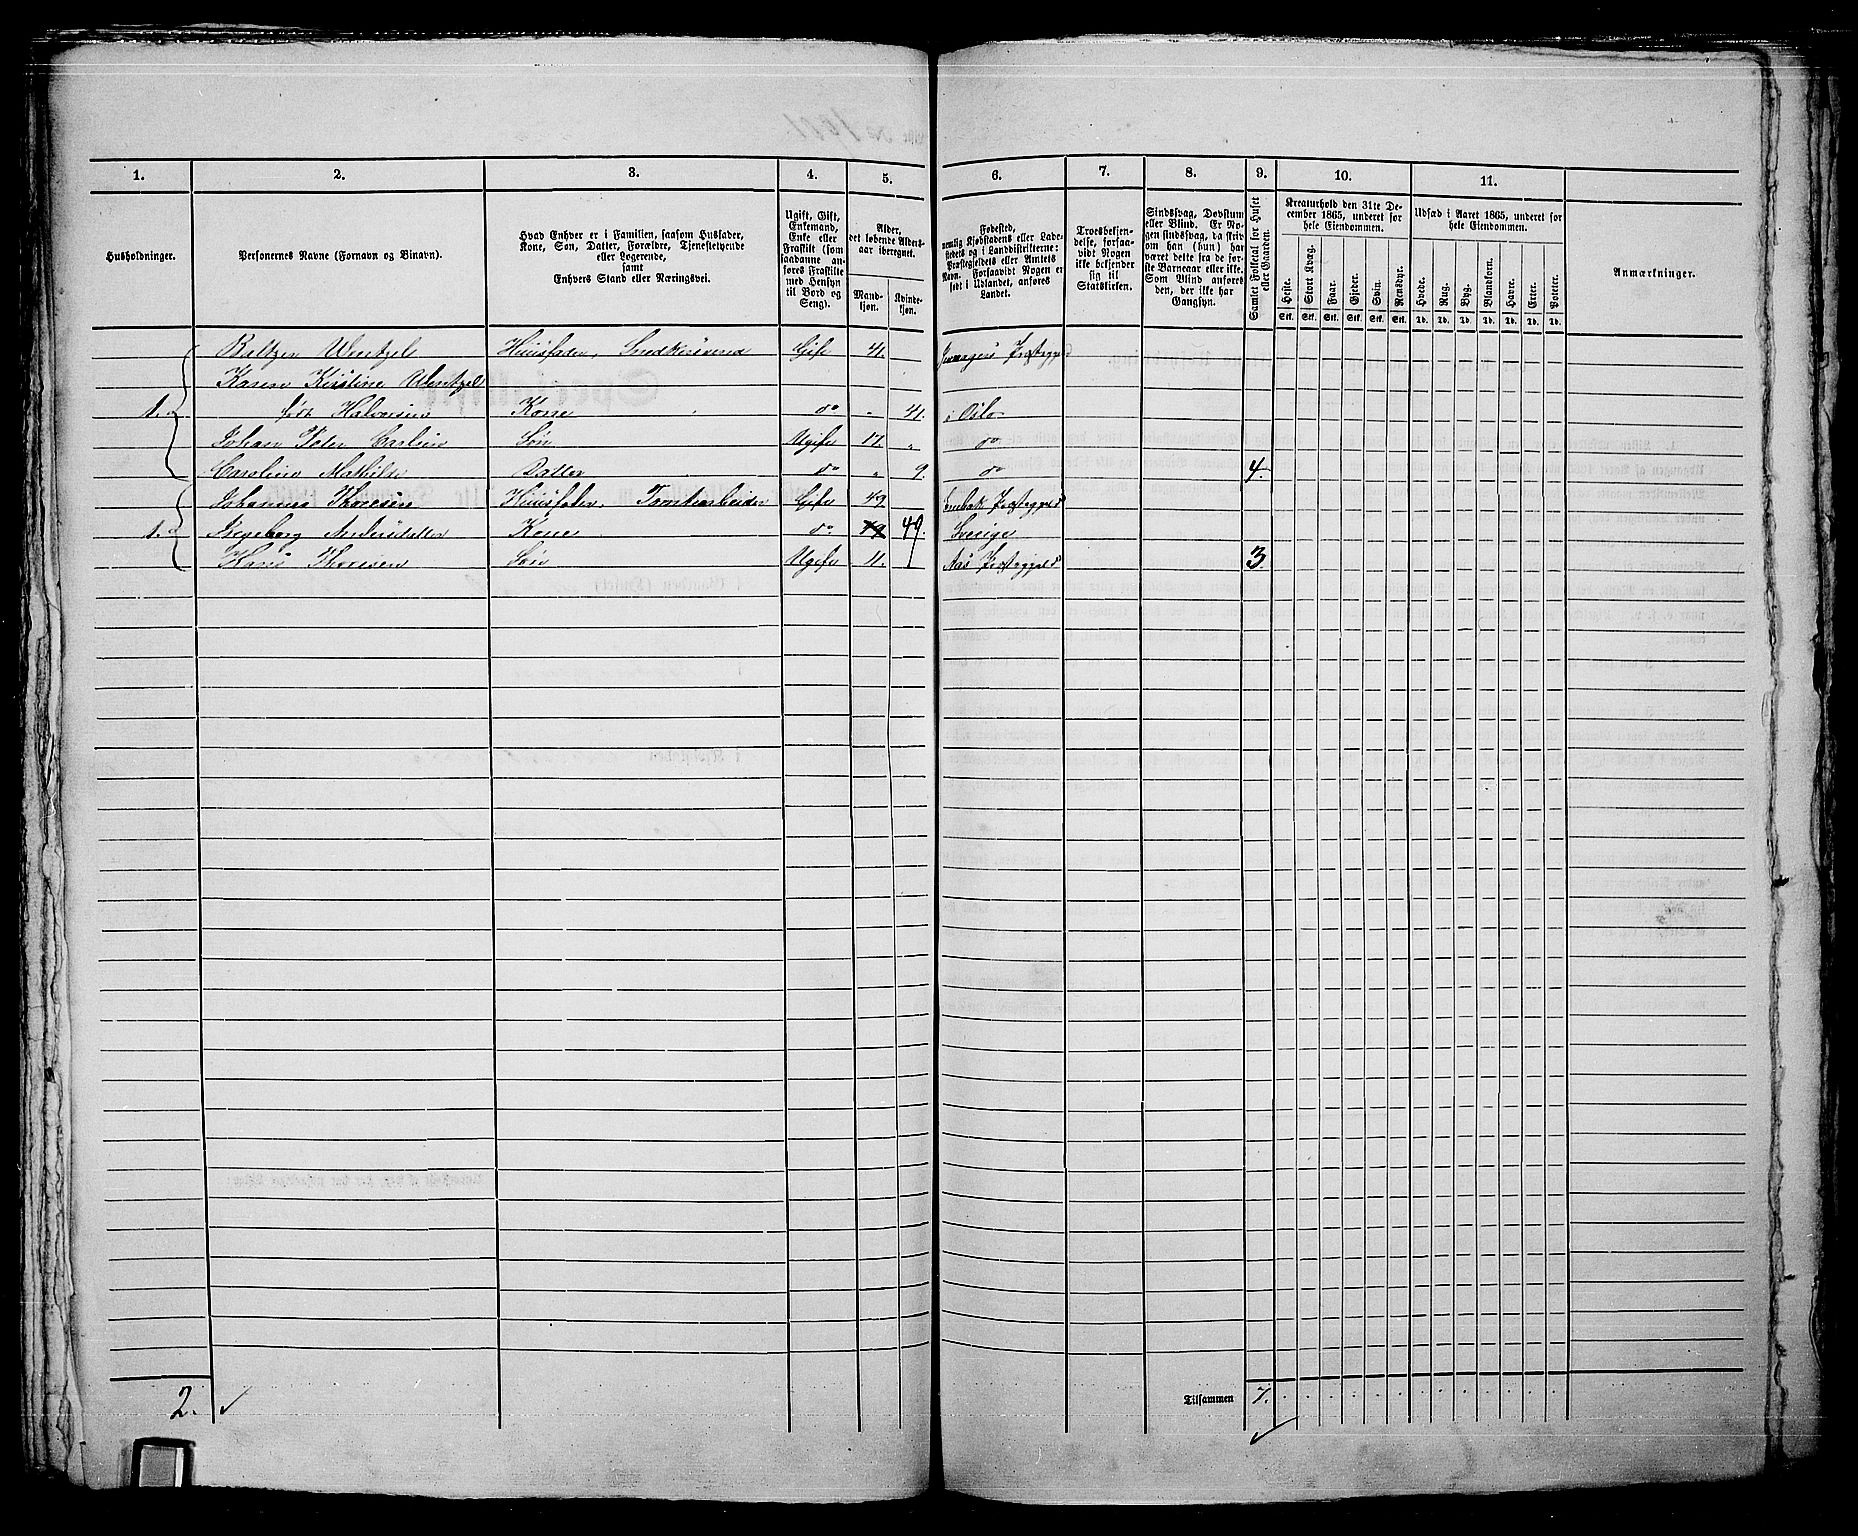 1. 2. 3. 4. 5. 6. 7. 8. 9. 10. 11.
Husholdninger.
Personernes Navne (Fornavn og Binavn).
Hvad Enhver er i Familien, saasom Husfader,
Kone, Søn, Datter, Forældre, Tjenestetyende
eller Logerende,
samt
Enhvers Stand eller Næringsvei.
Ugift, Gift,
Enkemand,
Enke eller
Fraskilt (som
saadanne an-
føres Fraskilte
med Hensyn
til Bord og
Seng).
Alder,
det løbende Alders-
aar iberegnet.
Mand-
kjøn.
Kvinde-
kjøn.
Fødested,
nemlig Kjøbstadens eller Lade-
stedets og i Landdistrikterne:
Præstegjeldets eller Amtets
Navn. Forsaavidt Nogen er
født i Udlandet, anføres
Landet.
Troesbekjen-
delse, forsaa-
vidt Nogen
ikke bekjender
sig til
Statskirken.
Sindssvag, Døvstum
eller Blind. Er No-
gen sindssvag, da skriv
om han (hun) har
været dette fra de før-
ste Barneaar eller ikke.
Som Blind anføres
den, der ikke har
Gangsyn.
Samlet Folketal for Huset
eller Gaarden.
Kreaturhold den 31te De-
cember 1865, underet for
hele Eiendommen.
Heste. Stort Kvæg. Faar. Gjeder. Svin. Rensdyr.
Stk. Stk. Stk. Stk. Stk. Stk.
Udsæd i Aaret 1865, underet for
hele Eiendommen.
Hvede. Rug. Byg. Blandkorn. Havre. Erter. Poteter.
Td. Td. Td. Td. Td. Td. Td.
Anmærkninger.
Baltzer Wentzel Huusfader, Snedkersvend Gift 41. Præstegjeld
Karen Kirstine Wentzel
1. født Halvorsen Kone do " 41. i Oslo
Johan Peter Søn Ugift 17. " do
Caroline Mathilde Datter do " 9. do 4.
Johannes Thoresen Huusfader, Tomtearbeider Gift 49 Enebak Præstegjeld
1. Ingeborg Andersdatter Kone do 49. Sverige
Hans Thoresen Søn Ugift 11. Aas Præstegjeld 3
2.
Tilsammen 7.